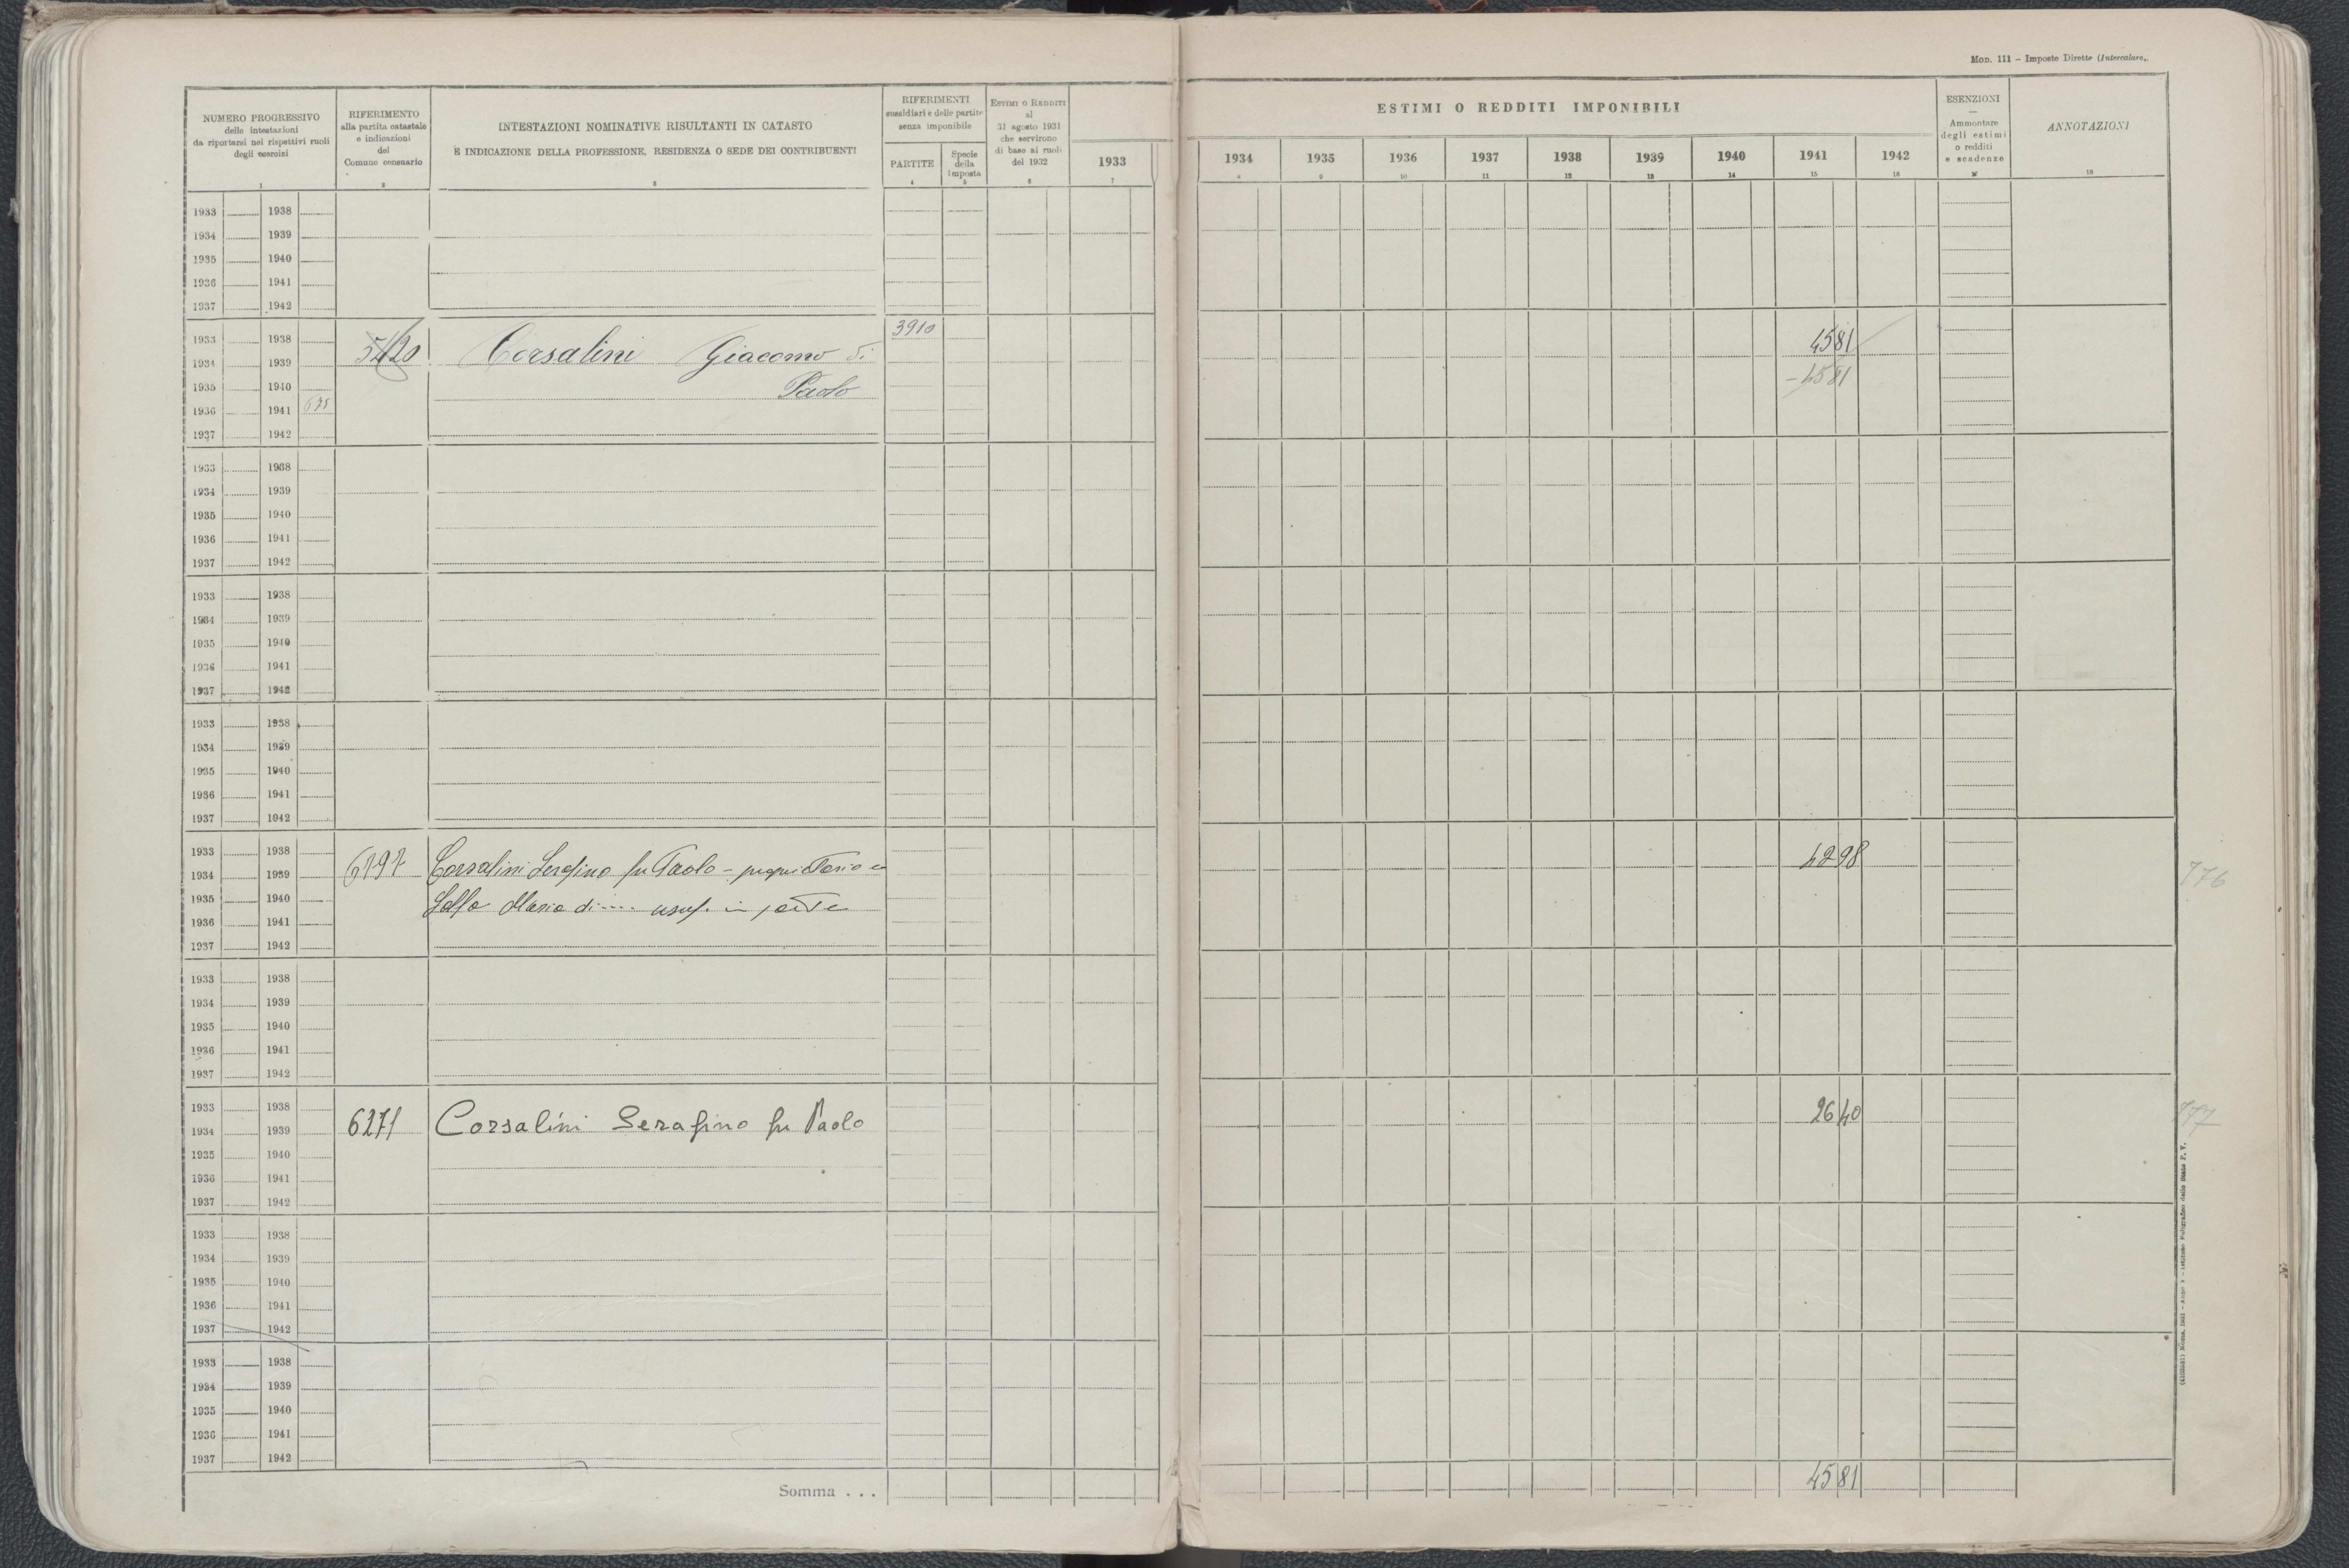 Mod. 111 – Imposte Dirette (Intercalare).
NUMERO PROGRESSIVO
delle intestazioni
da riportarsi nei rispettivi ruoli
degli esercizi
1
RIFERIMENTO
alla partita catastale
e indicazioni
del
Comune censuario
2
INTESTAZIONI NOMINATIVE RISULTANTI IN CATASTO
E INDICAZIONE DELLA PROFESSIONE, RESIDENZA O SEDE DEI CONTRIBUENTI
3
RIFERIMENTI
sussidiari e delle partite
senza imponibile
PARTITE
4
Specie
della
imposta
5
ESTIMI O REDDITI
al
31 agosto 1931
che servirono
di base ai ruoli
del 1932
6
ESTIMI O REDDITI IMPONIBILI
1933 1934 1935 1936 1937 1938 1939 1940 1941 1942
7 8 9 10 11 12 13 14 15 16
ESENZIONI
—
Ammontare
degli estimi
o redditi
e scadenze
17
ANNOTAZIONI
18
1933 1938
1934 1939
1935 1940
1936 1941
1937 1942
1933 1938 3910
1934 1939 5420 Corsalini Giacomo di 4581
1935 1940 Paolo – 4581
1936 1941 675
1937 1942
1933 1938
1934 1939
1935 1940
1936 1941
1937 1942
1933 1938
1934 1939
1935 1940
1936 1941
1937 1942
1933 1938
1934 1939
1935 1940
1936 1941
1937 1942
1933 1938
1934 1939 6797 Corsalini Serafino fu Paolo – proprietario e 4298 776
1935 1940 Maria di .... usuf. in parte
1936 1941
1937 1942
1933 1938
1934 1939
1935 1940
1936 1941
1937 1942
1933 1938
1934 1939 6271 Corsalini Serafino fu Paolo 2640 777
1935 1940
1936 1941
1937 1942
1933 1938
1934 1939
1935 1940
1936 1941
1937 1942
1933 1938
1934 1939
1935 1940
1936 1941
1937 1942
Somma . . . 4581